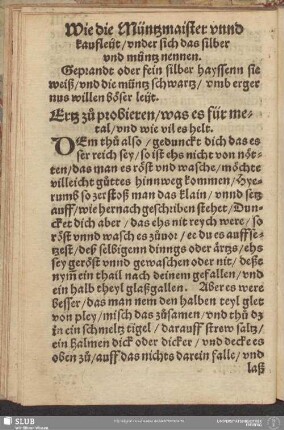 Wie die Müntzmaister vnnd
kaufleüt/vnder sich das silber
vnd müntz nennen.
Geprandt oder fein silber hayssenn sie
weiß/vnd die müntz schwartz/ vmb erger
nus willen böser leyt.
Ertz zů probieren/was es für me-
tal/vnd wie vil es helt.
DEm thů also/ gedunckt dich das es
ser reich sey/so ist ehs nicht von nöt-
ten/das man es röst vnd wasche/möchte
villeicht güttes hinnweg kommen/Hye-
rumb so zerstoß man das klain/ vnnd setz
auff/wie hernach geschriben stehet/Dun-
cket dich aber/das ehs nit reych were/so
röst vnnd wasch es zůuor/ee du es auffse-
tzest/deß selbigenn dinngs oder ärtzs/ehs
sey geröst vnnd gewaschen oder nit/deße
nym̃ ein thail nach deinem gefallen/vnd
ein halb theyl glaßgallen. Aber es were
besser/das man nem den halben teyl glet
von pley/misch das zůsamen/vnd thů dz
in ein schmeltz tigel/darauff strew saltz/
ein halmen dick oder dicker/vnd decke es
oben zů/auff das nichts darein falle/vnd
laß
SLUB